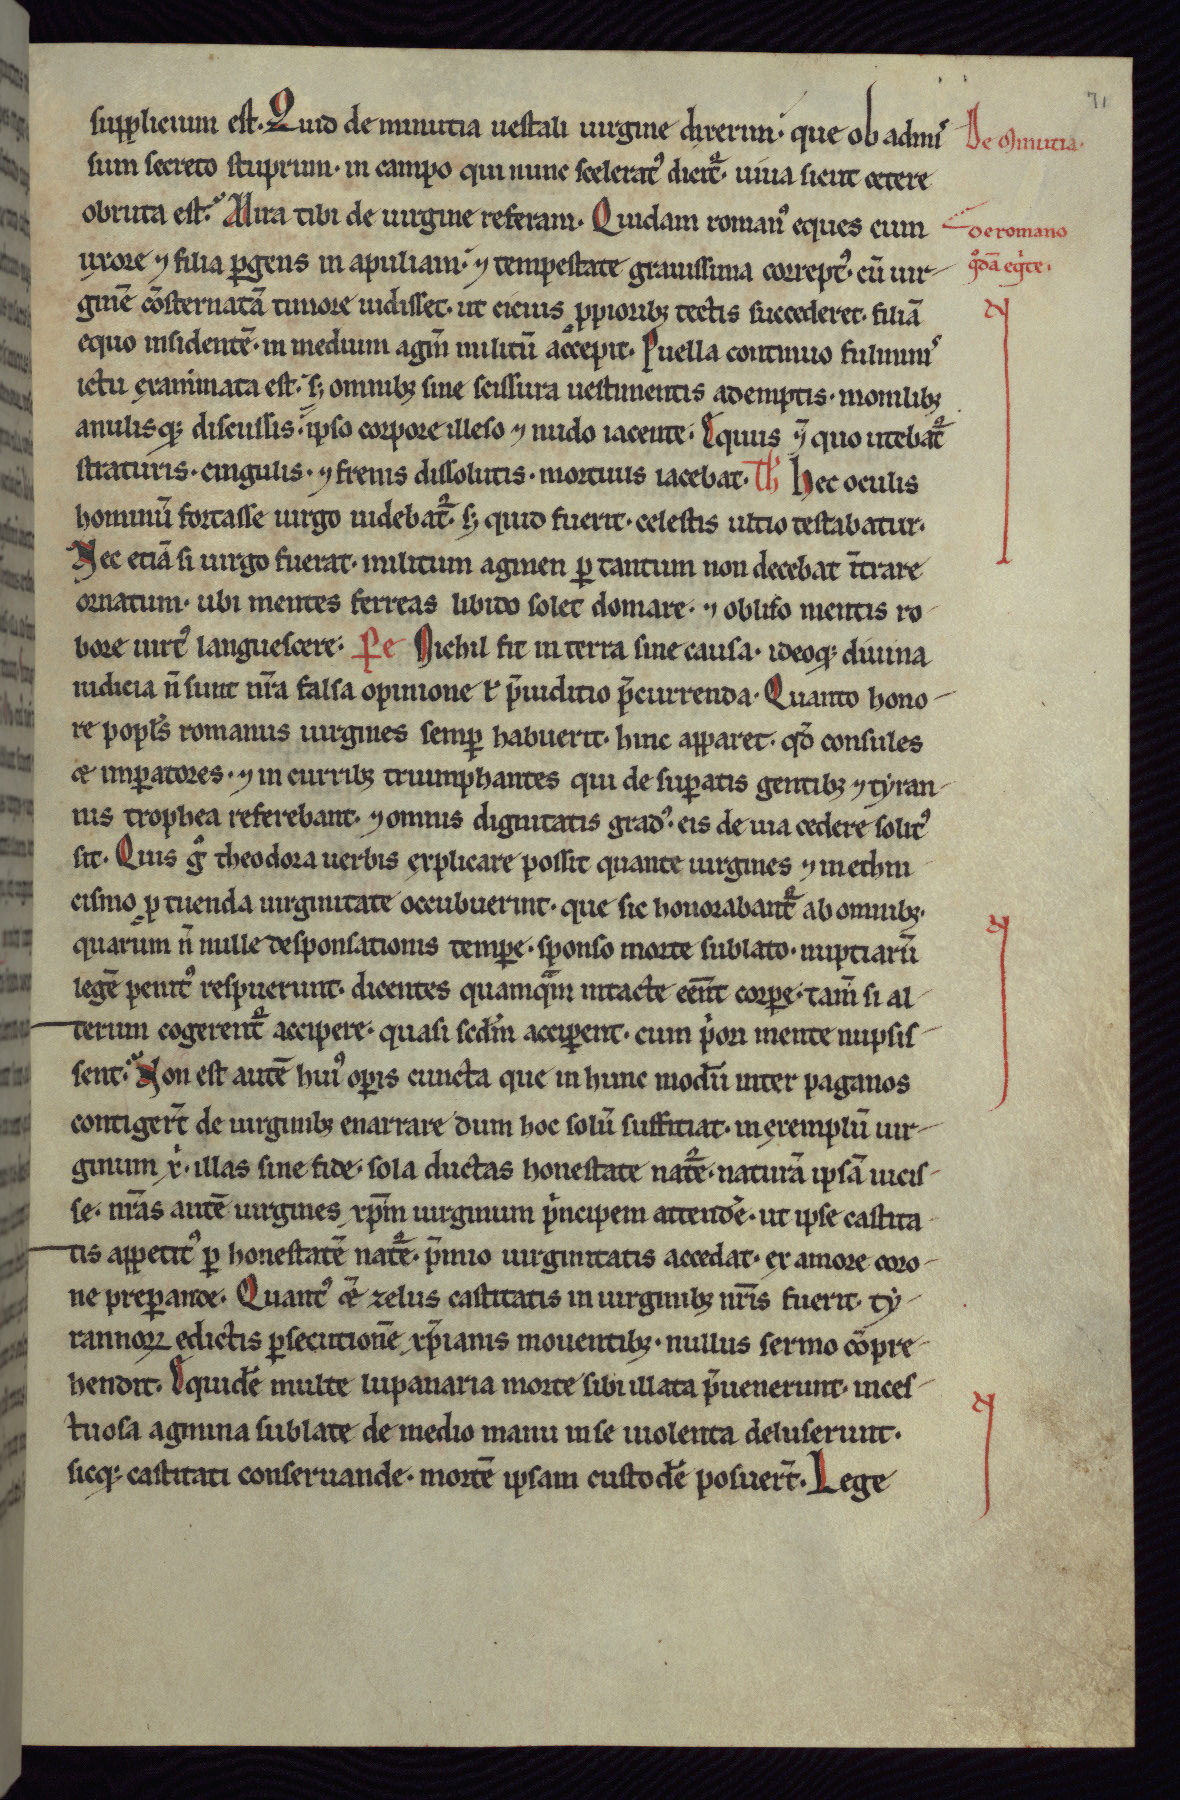 71
supplicium est. Quid de minutia uestali uirgine dixerim. que ob admis
De Minutia.
sum secreto stuprum. in campo qui nunc sceleratꝰ dicit᷑. uiua sicut cetere
obruta est. Mira tibi de uirgine referam. Quidam romanꝰ eques cum
de romano
uxore ⁊ filia ꝑgens in apuliam. ⁊ tempestate grauissima correptꝰ. cū uir-
qͦdā eqͥte.
ginē cōsternatā timore uidisset. ut citius ꝓpioribꝫ tectis succederet. filiā
equo insidentē. in medium agm̄ militū accepit. Puella continuo fulminis
ictu exanimata est. sꝫ omnibꝫ sine scissura uestimentis ademptis. monilibꝫ
anulisqꝫ discussis. ipso corpore illeso ⁊ nudo iacente. Equus ⁊̄ quo utebat᷑
straturis. cingulis. ⁊ frenis dissolutis. mortuus iacebat. Th̄ Hec oculis
hominū fortasse uirgo uidebat᷑. sꝫ quid fuerit. celestis ultio testabatur.
Nec etiā si uirgo fuerat. militum agmen ꝑ tantum non decebat īt̄rare
ornatum. ubi mentes ferreas libido solet domare. ⁊ oblito mentis ro
bore uirtꝰ languescere. Pe Nichil fit in terra sine causa. ideoqꝫ diuina
iudicia n̄ sunt nr̄a falsa opinione ł p̄iuditio p̄currenda. Quanto hono-
re popłs romanus uirgines semꝑ habuerit. hinc apparet. qd̄ consules
⁊ imꝑatores. ⁊ in curribꝫ triumphantes qui de suꝑatis gentibꝫ ⁊ tyran-
nis trophea referebant. ⁊ omnis dignitatis gradꝰ. eis de uia cedere solitꝰ
sit. Quis gͦ theodora uerbis explicare possit quante uirgines ⁊ in ethni
cismo ꝓ tuenda uirginitate occubuerint. que sic honorabant᷑ ab omnibꝫ.
quarum n̄ nulle desponsationis tempe. sponso morte sublato. nuptiarū
legē penitꝰ respuerunt. dicentes quamqͣm intacte eēnt corꝑe. tam̄ si al-
terum cogerent᷑ accipere. quasi secd̄m acciꝑent. cum pͥori mente nupsis-
sent. Non est autē huiꝰ oꝑis cuncta que in hunc modū inter paganos
contigert̄ de uirginibꝫ enarrare dum hoc solū suffitiat. in exemplū uir-
ginum xͥ. illas sine fide. sola ductas honestate nat᷑e. naturā ipsā uicis-
se. nr̄as autē uirgines xp̄m uirginum pͥncipem attend̄e. ut ipse castita
tis appetitꝰ ꝑ honestatē nat᷑e. p̄mio uirginitatis accedat. ex amore coro-
ne preꝑande. Quantꝰ ⁊̄ zelus castitatis in uirginibꝫ nr̄is fuerit. ty-
rannoꝝ edictis ꝑsecutionē xp̄ianis mouentibꝫ. nullus sermo cōpre-
hendit. Equidē multe lupanaria morte sibi illata p̄uenerunt. inces-
tuosa agmina sublate de medio manu in se uiolenta deluserunt.
sicqꝫ castitati conseruande. mortē ipsam custodē posuert̄. Lege